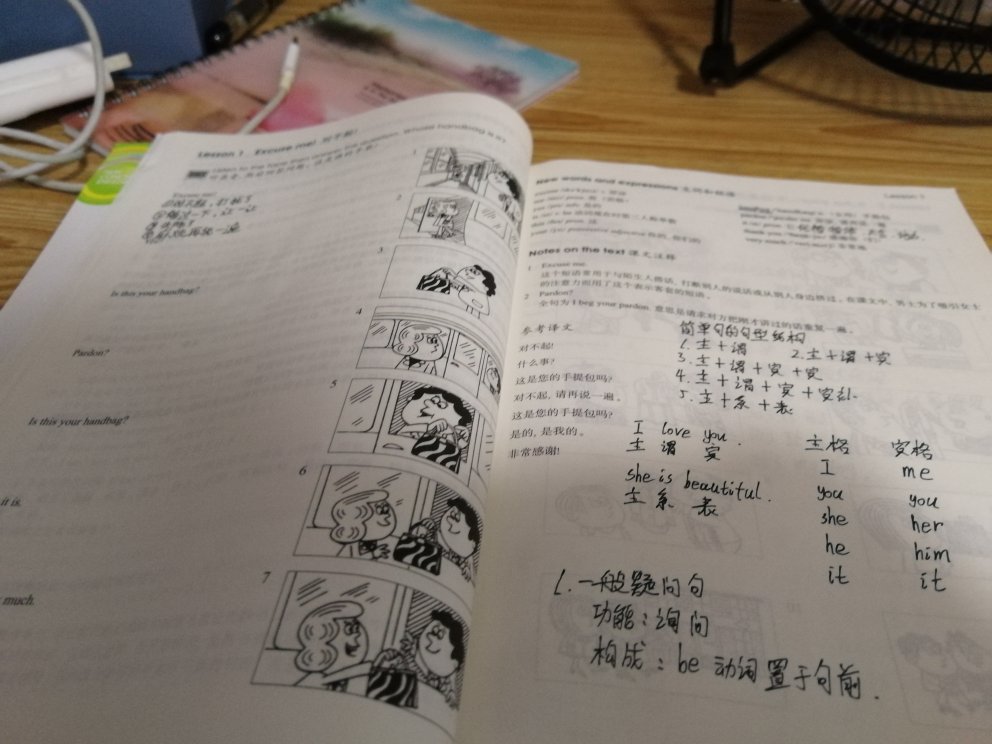 Lesson 1 Excuse me! 对不起!
Listen to the tape then answer this question. Whose handbag is it?
Excuse me!
Is this your handbag?
Pardon?
Is this your handbag?
it is.
much.
1
2
3
4
5
6
7
New words and expressions 生词和短语
Lesson 1
Notes on the text 课文注释
1 Excuse me.
这个短语常用于与陌生人搭话,打断别人的说话或从别人身边挤过。在课文中,男士为了吸引女士
的注意力而用了这个表示客套的短语。
2 Pardon?
全句为 I beg your pardon. 意思是请求对方把刚才讲过的话重复一遍。
参考译文
对不起!
什么事?
这是您的手提包吗?
对不起,请再说一遍。
这是您的手提包吗?
是的,是我的。
非常感谢!
简单句的句型结构
1. 主+谓 2. 主+谓+宾
3. 主+谓+宾+宾
4. 主+谓+宾+宾补
5. 主+系+表
I love you.
主 谓 宾
she is beautiful.
主 系 表
主格 宾格
I me
you you
she her
he him
it it
1. 一般疑问句
功能:询问
构成:be 动词置于句前.